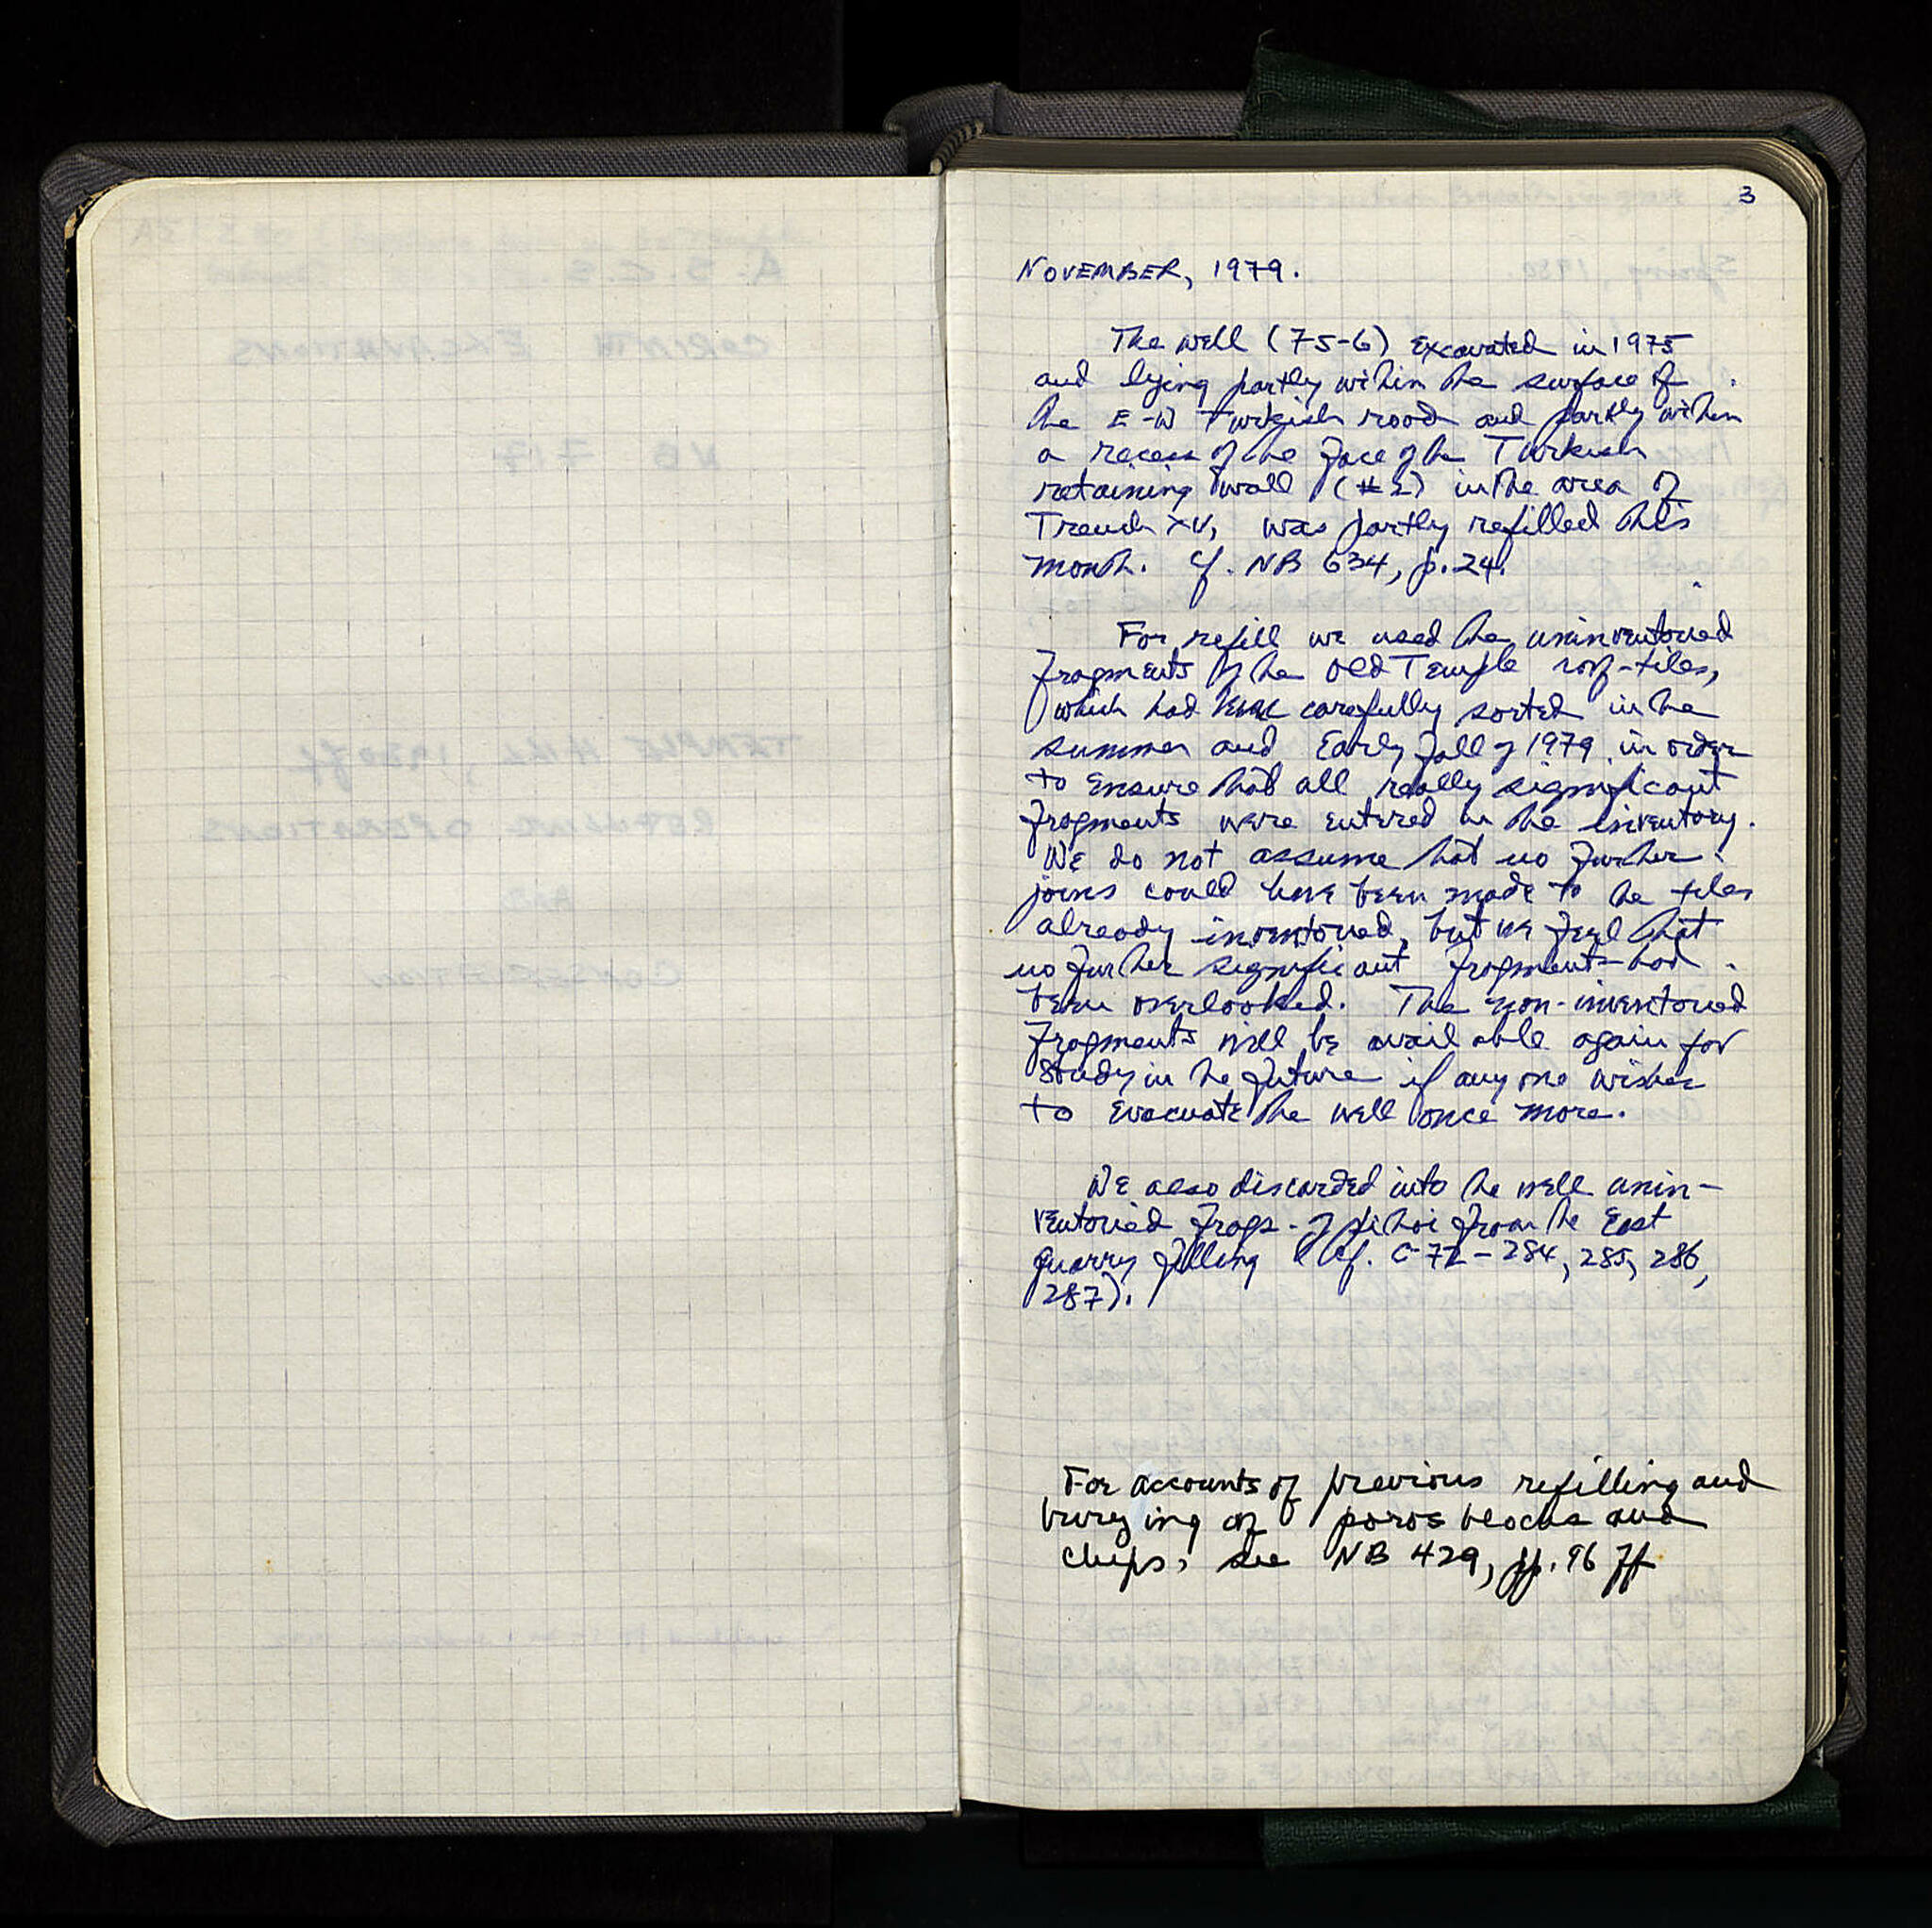 3
NOVEMBER, 1979.
The well (75-6) excavated in 1975
and lying partly within the surface of
the E-W Turkish road and partly within
a recess of the face of the Turkish
retaining wall (#2) in the area of
Trench XV, was partly refilled this
month. Cf. NB 634, p. 24.
For refill we used the uninventoried
fragments of the Old Temple roof-tiles,
which had been carefully sorted in the
summer and early fall of 1979 in order
to ensure that all really significant
fragments were entered in the inventory.
We do not assume that no further
joins could have been made to the tiles
already inventoried, but we feel that
no further significant fragments had
been overlooked. The non-inventoried
fragments will be available again for
study in the future if anyone wishes
to evacuate the well once more.
We also discarded into the well unin-
ventoried frags. of pithoi from the East
quarry filling (cf. C-72-284, 285, 286,
287).
For accounts of previous refilling and
burying of poros blocks and
chips, see NB 429, pp. 96 ff